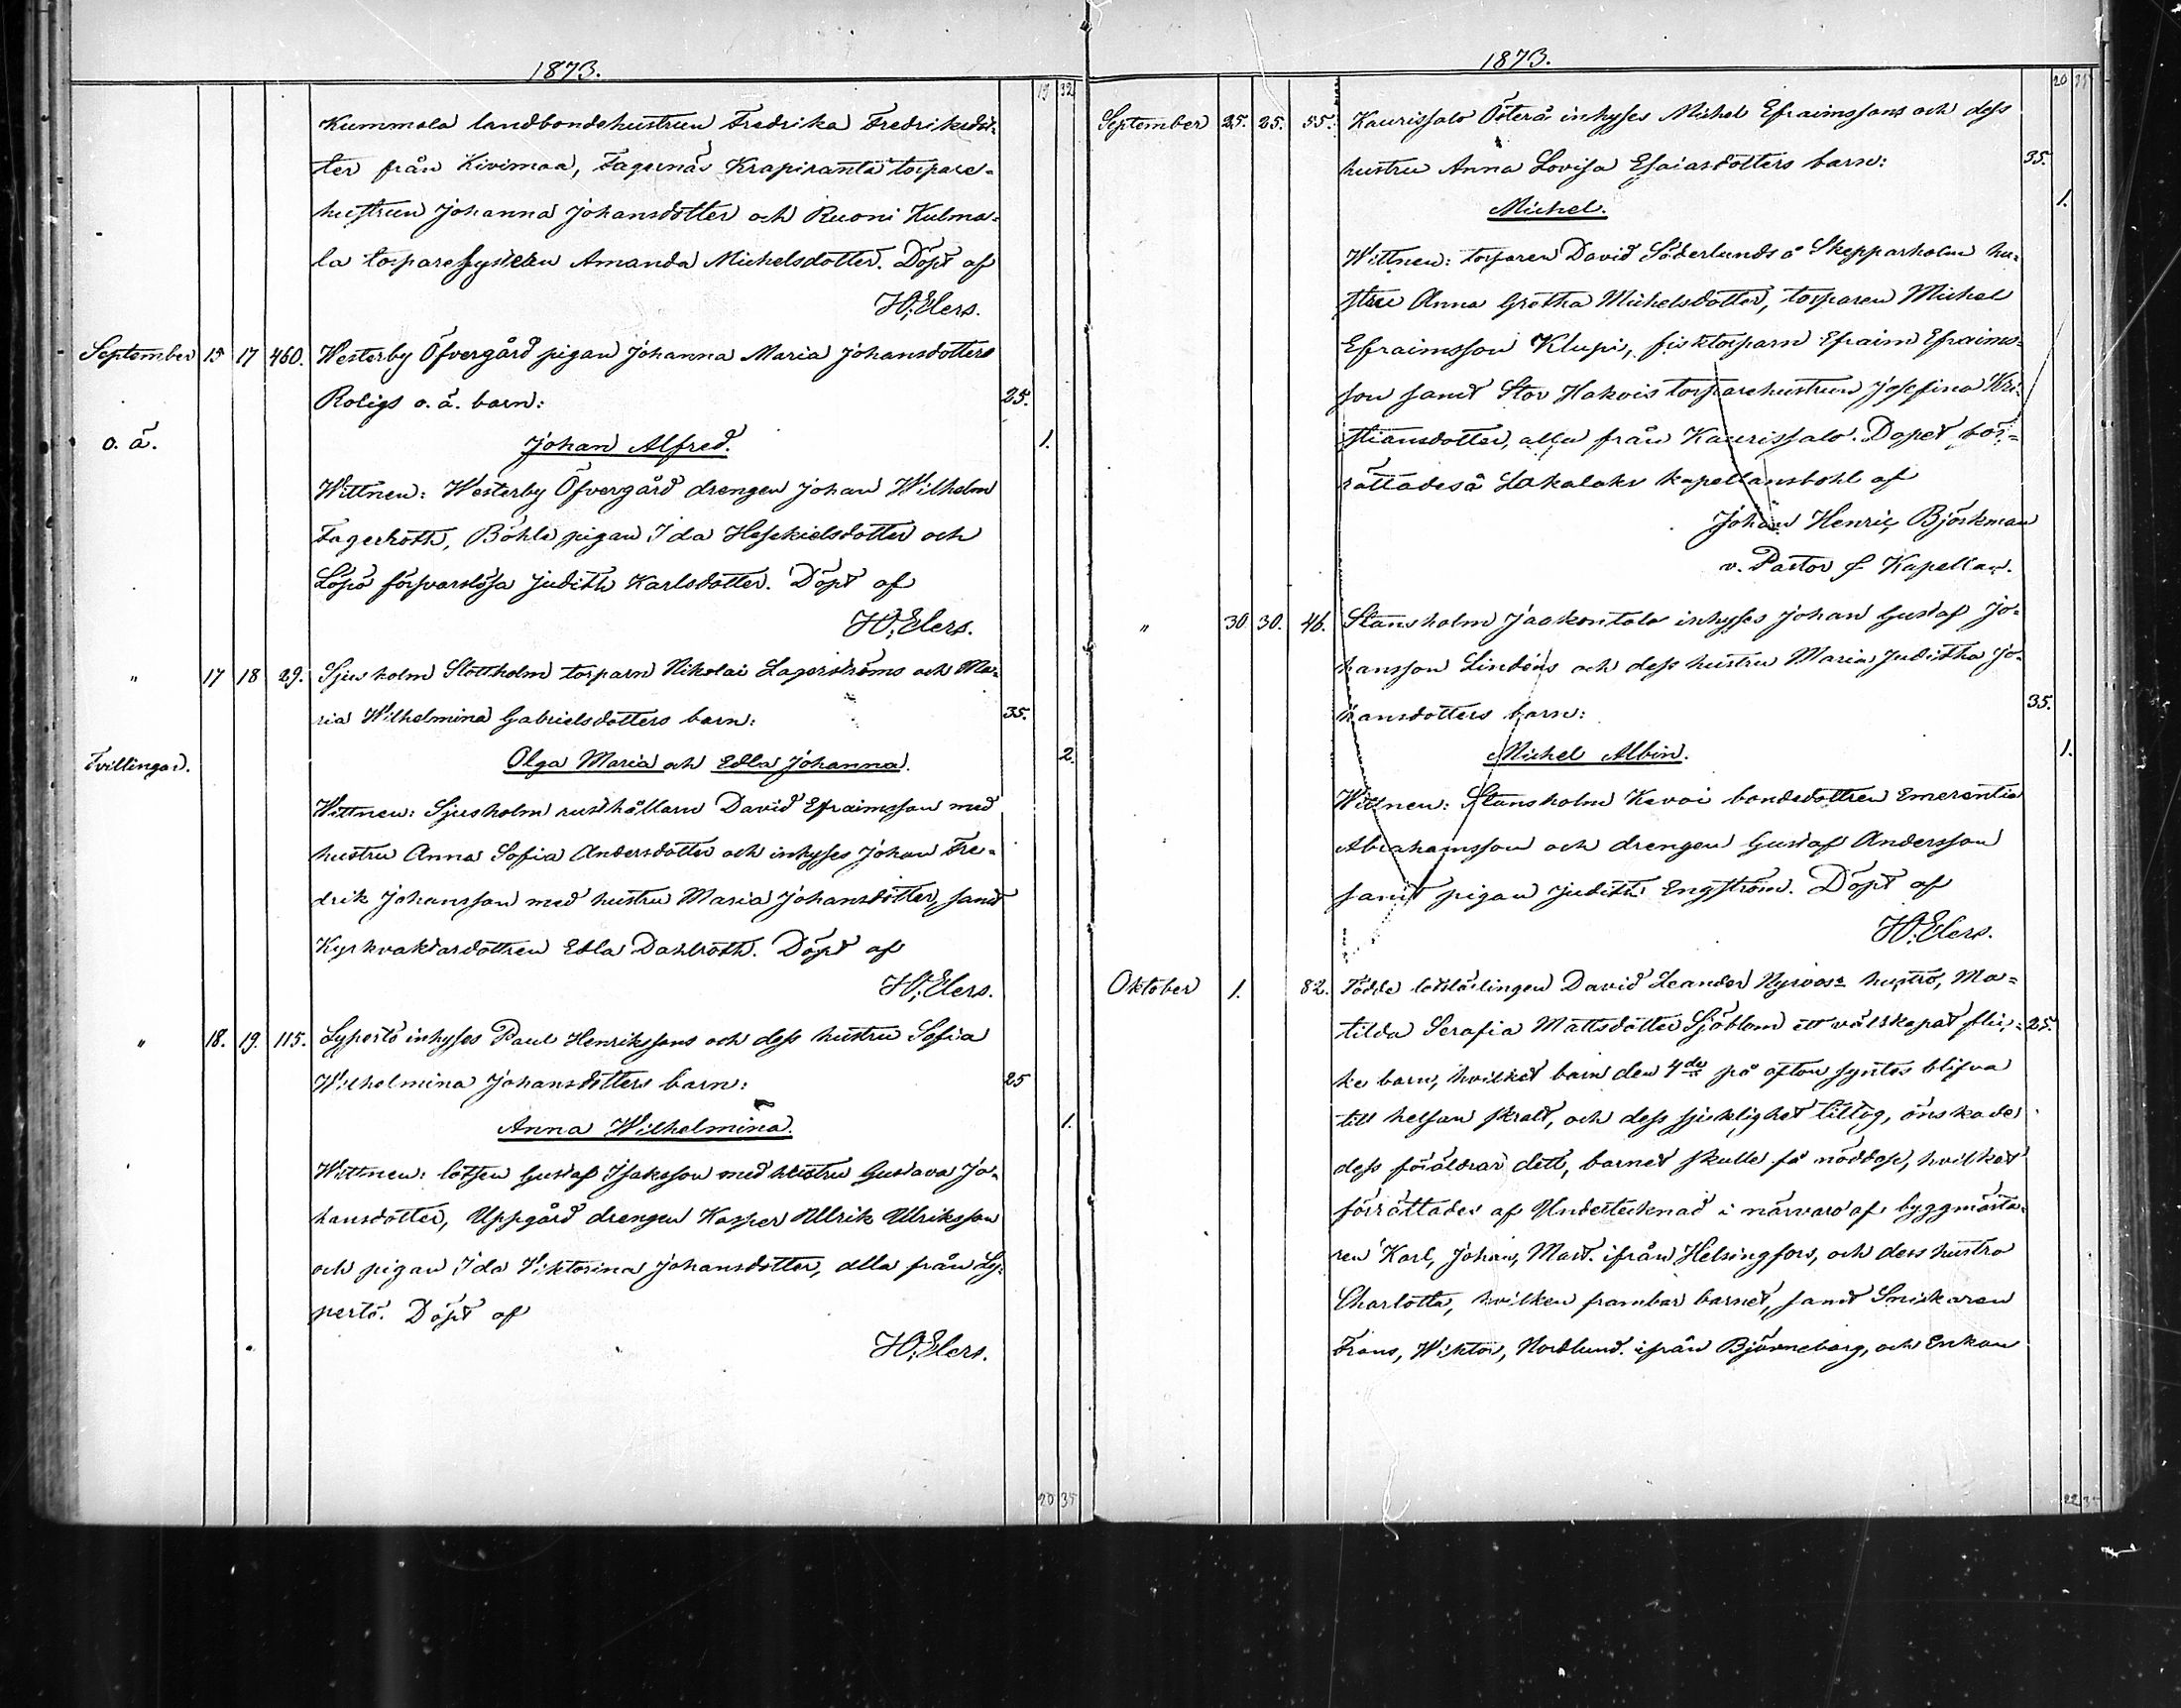 1873.
19 32
Kummola landbondehustrun Fredrika Fredriksdot-
ter från Kivimaa, Fagernäs Krapiranta torpare-
hustrun Johanna Johansdotter och Ruoni Kulma-
la torparesystern Amanda Michelsdotter. Döpt af
H. Elers.
September 15 17 460. Westerby Öfvergård pigan Johanna Maria Johansdotters
Roligs o. ä. barn: 25.
o. ä. Johan Alfred. 1.
Wittnen: Westerby Öfvergård drengen Johan Wilhelm
Fagerroth, Böhle pigan Ida Hesekielsdotter och
Löpö försvarslösa Judith Karlsdotter. Döpt af
H. Elers.
" 17 18 29. Sjusholm Slottholm torparn Nikolai Lagerströms och Ma-
ria Wilhelmina Gabrielsdotters barn: 35.
Tvillingar. Olga Maria och Edla Johanna. 2.
Wittnen: Sjusholm rusthållarn David Efraimsson med
hustru Anna Sofia Andersdotter och inhyses Johan Fre-
drik Johansson med hustru Maria Johansdotter, samt
Kyrkvaktardottren Edla Dahlroth. Döpt af
H. Elers.
" 18. 19. 115. Lypertö inhyses Paul Henrikssons och dess hustru Sofia
Wilhelmina Johansdotters barn: 25
Anna Wilhelmina. 1.
Wittnen: lotsen Gustaf Isaksson med hustru Gustava Jo-
hansdotter, Uppgård drengen Kasper Ulrik Ulriksson
och pigan Ida Viktorina Johansdotter, alla från Ly-
pertö. Döpt af
H. Elers.
20 35
1873.
20 35
September 25. 25. 55. Kaurissalo Österå inhyses Michel Efraimssons och dess
hustru Anna Lovisa Esaiasdotters barn: 35.
Michel. 1.
Wittnen: torparen David Söderlunds å Skepparholm hu-
stru Anna Gretha Michelsdotter, torparen Michel
Efraimsson Klupi, fisktorparn Efraim Efraims-
son samt Stor Hakois torparehustrun Josefina Kri-
stiansdotter, alla från Kaurissalo. Dopet för-
rättades å Lokalaks kapellansbohl af
Johan Henric Björkman
v. Pastor & Kapellan.
" 30 30. 46. Stansholm Jaakontalo inhyses Johan Gustaf Jo-
hansson Lindéns och dess hustru Maria Juditha Jo-
hansdotters barn: 35.
Michel Albin. 1.
Wittnen: Stansholm Kavoi bondedottren Emerentia
Abrahamsson och drengen Gustaf Andersson
samt pigan Judith Engström. Döpt af
H. Elers.
Oktober 1. 82. Födde lotslärlingen David Leander hustro, Ma-
tilda Serafia Mattsdotter Sjöblom ett välskapat flic- 25.
ke barn, hvilket barn den 4de på afton syntes blifva
till helsan skralt, och dess sjuklighet tilltog, önskade
dess föräldrar dett, barnet skulle få nöddop, hvilket
förrättades af Undertecknad i närvaro af byggmästa-
ren Karl, Johan, Matt. ifrån Helsingfors, och dess hustro
Charlotta, hvilken frambar barnet, samt Snickaren
Frans, Wiktor, Nordlund. ifrån Björneborg, och Enkan
22 35